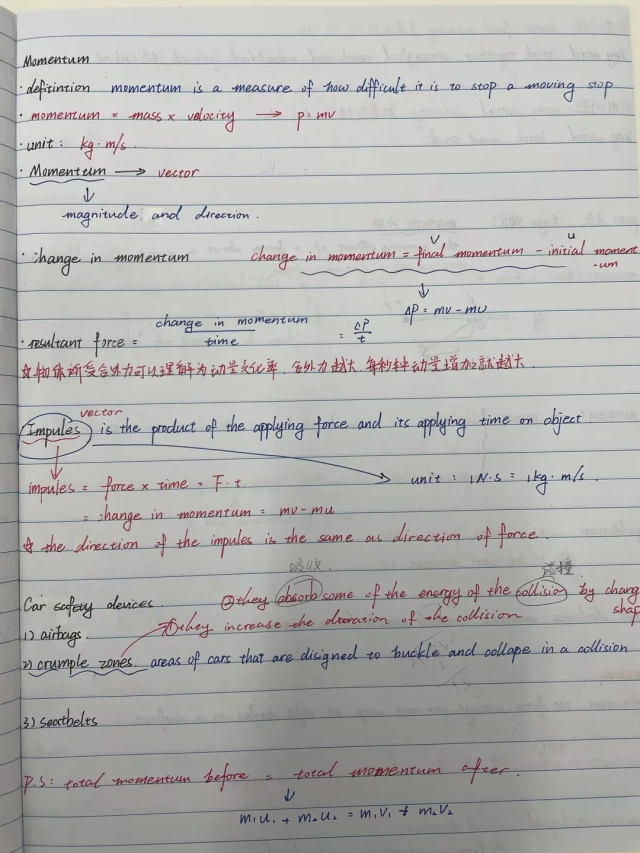 Momentum
· defitintion momentum is a measure of how difficult it is to stop a moving stop
· momentum = mass x velocity → p = mv
· unit: kg·m/s.
· Momentum → vector
↓
magnitude and direction.
v u
· change in momentum change in momentum = final momentum - initial moment
-um
↓
ΔP = mv - mu
· resultant force = change in momentum / time = ΔP / t
☆物体所受合外力可以理解为动量变化率，合外力越大，每秒钟动量增加就越大.
vector
Impules is the product of the applying force and its applying time on object.
unit: 1N·S = 1kg·m/s.
impules = force x time = F·t
= change in momentum = mv - mu
☆ the direction of the impules is the same as direction of force.
吸收. 碰撞
Car safety devices. ①they absorb some of the energy of the collision by chang
shap
1) airbags. ②they increase the duoration of the collision
2) crumple zones. areas of cars that are disigned to buckle and collape in a collision
3) seatbelts
P.S: total momentum before = total momentum after.
↓
m₁u₁ + m₂u₂ = m₁v₁ + m₂v₂